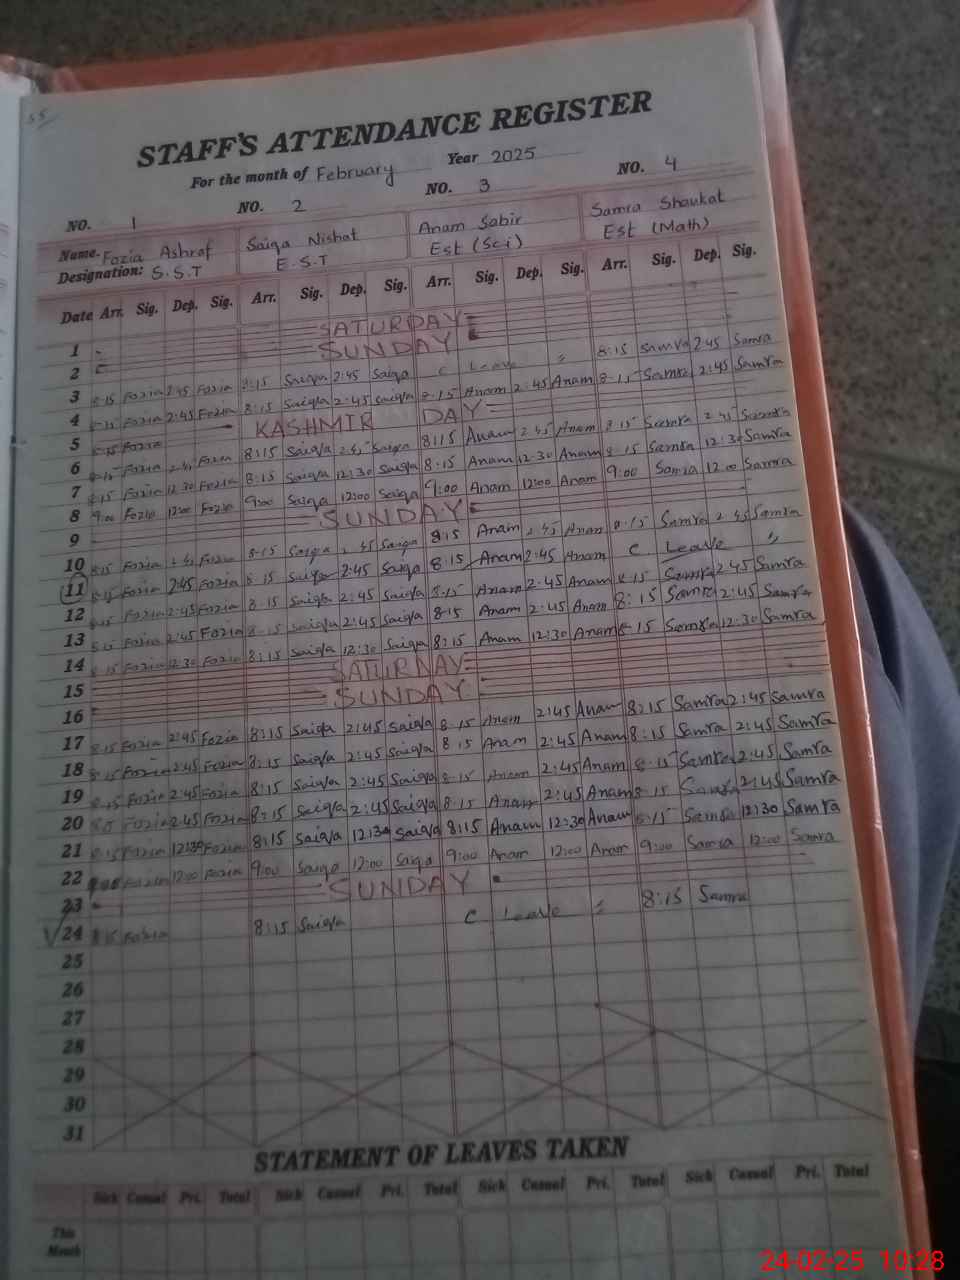 55
STAFF'S ATTENDANCE REGISTER
For the month of February Year 2025
NO. 1 NO. 2 NO. 3 NO. 4
Name. Fozia Ashraf Saiqa Nishat Anam Sabir Samra Shaukat
Designation: S.S.T E.S.T Est (Sci) Est (Math)
Date Arr. Sig. Dep. Sig. Arr. Sig. Dep. Sig. Arr. Sig. Dep. Sig. Arr. Sig. Dep. Sig.
1 SATURDAY
2 SUNDAY
3 8-15 Fozia 2:45 Fozia 8:15 Saiqa 2:45 Saiqa C Leave 8:15 Samra 2:45 Samra
4 8-15 Fozia 2:45 Fozia 8:15 Saiqa 2:45 Saiqa 8-15 Anam 2:45 Anam 8-15 Samra 2:45 Samra
5 KASHMIR DAY
6 8-15 Fozia 2:45 Fozia 8:15 Saiqa 2:45 Saiqa 8:15 Anam 2:45 Anam 8:15 Samra 2:45 Samra
7 8-15 Fozia 12:30 Fozia 8:15 Saiqa 12:30 Saiqa 8:15 Anam 12:30 Anam 8-15 Samra 12:30 Samra
8 9:00 Fozia 12:00 Fozia 9:00 Saiqa 12:00 Saiqa 9:00 Anam 12:00 Anam 9:00 Samra 12:00 Samra
9 SUNDAY
10 8:15 Fozia 2:45 Fozia 8:15 Saiqa 2:45 Saiqa 8:15 Anam 2:45 Anam 8:15 Samra 2:45 Samra
11 8-15 Fozia 2:45 Fozia 8-15 Saiqa 2:45 Saiqa 8:15 Anam 2:45 Anam C Leave "
12 8-15 Fozia 2:45 Fozia 8-15 Saiqa 2:45 Saiqa 8-15 Anam 2:45 Anam 8-15 Samra 2:45 Samra
13 Fozia 2:45 Fozia 8-15 Saiqa 2:45 Saiqa 8:15 Anam 2:45 Anam 8:15 Samra 2:45 Samra
14 8-15 Fozia 12:30 Fozia 8:15 Saiqa 12:30 Saiqa 8:15 Anam 12:30 Anam 8-15 Samra 12:30 Samra
15 SATURDAY
16 SUNDAY
17 8:15 Fozia 2:45 Fozia 8:15 Saiqa 2:45 Saiqa 8-15 Anam 2:45 Anam 8:15 Samra 2:45 Samra
18 8-15 Fozia 2:45 Fozia 8:15 Saiqa 2:45 Saiqa 8:15 Anam 2:45 Anam 8:15 Samra 2:45 Samra
19 8-15 Fozia 2:45 Fozia 8:15 Saiqa 2:45 Saiqa 8-15 Anam 2:45 Anam 8-15 Samra 2:45 Samra
20 Fozia 2:45 Fozia 8:15 Saiqa 2:45 Saiqa 8-15 Anam 2:45 Anam 8-15 Samra 2:45 Samra
21 8:15 Fozia 12:30 Fozia 8:15 Saiqa 12:30 Saiqa 8:15 Anam 12:30 Anam 8:15 Samra 12:30 Samra
22 9:00 Fozia 12:00 Fozia 9:00 Saiqa 12:00 Saiqa 9:00 Anam 12:00 Anam 9:00 Samra 12:00 Samra
23 SUNDAY
24 8:15 Fozia 8:15 Saiqa C Leave 8:15 Samra
25
26
27
28
29
30
31
STATEMENT OF LEAVES TAKEN
Sick Casual Pri. Total Sick Casual Pri. Total Sick Casual Pri. Total Sick Casual Pri. Total
This
Month
24-02-25 10:28